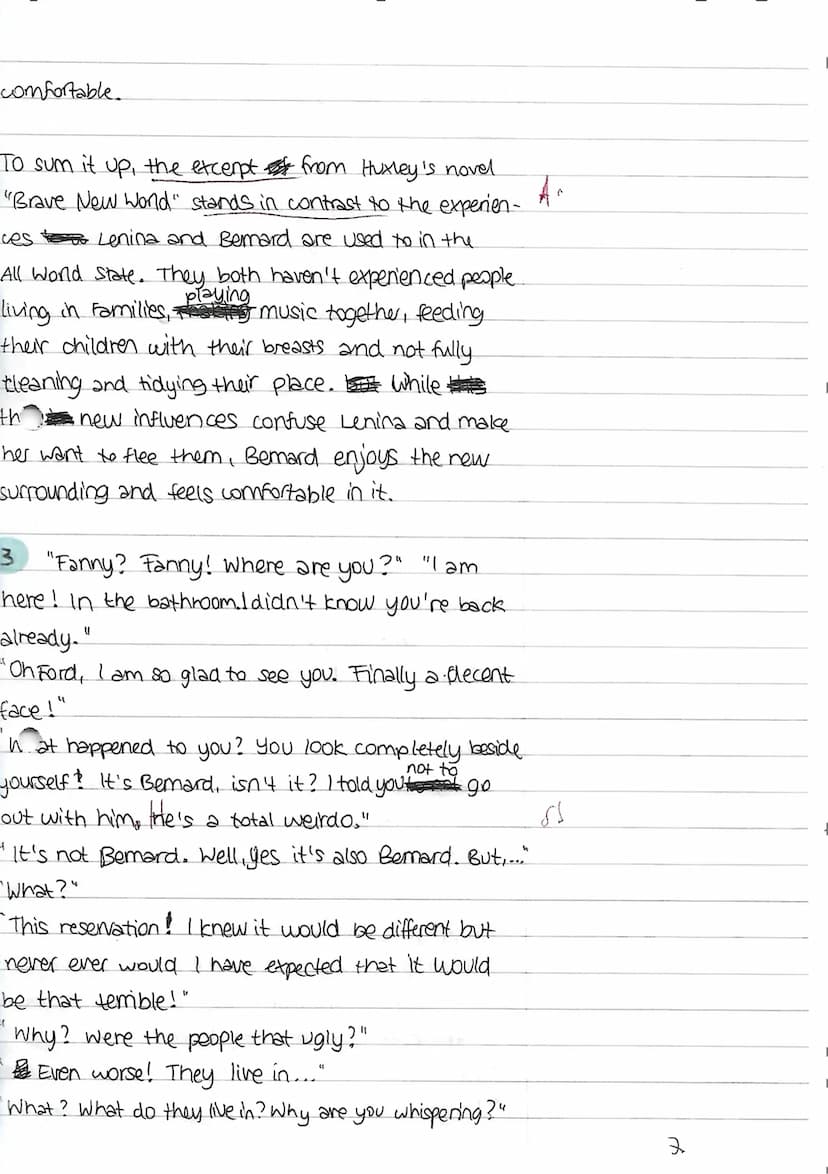 comfortable.
To sum it up, the excerpt from Huxley's novel
"Brave New World" stands in contrast to the experien- A
ces Lenina and Bernard are used to in the
All World State. They both haven't experienced people
living in families, playing music together, feeding
their children with their breasts and not fully
cleaning and tidying their place. While
th new influences confuse Lenina and make
her want to flee them, Bernard enjoys the new
surrounding and feels comfortable in it.
3 "Fanny? Fanny! Where are you?" "I am
here! In the bathroom. I didn't know you're back
already."
"Oh Ford, I am so glad to see you. Finally a decent
face!"
"W at happened to you? You look completely beside
yourself! It's Bernard, isn't it? I told you not to go
out with him, He's a total weirdo."
"It's not Bernard. Well, yes it's also Bernard. But,..."
"What?"
"This reservation! I knew it would be different but
never ever would I have expected that it would
be that terrible!"
"Why? Were the people that ugly?"
"Even worse! They live in..."
"What? What do they live in? Why are you whispering?"